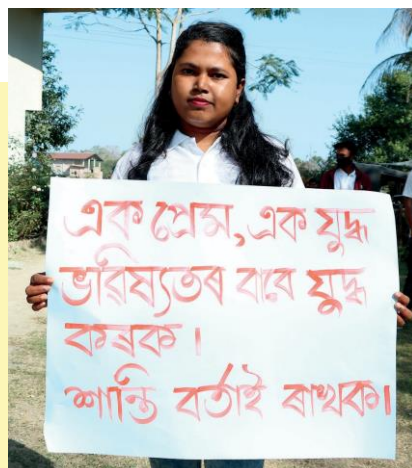 এক প্ৰেম, এক যুদ্ধ
ভৱিষ্যতৰ বাবে যুদ্ধ
কৰক।
শান্তি বৰ্তাই ৰাখক।